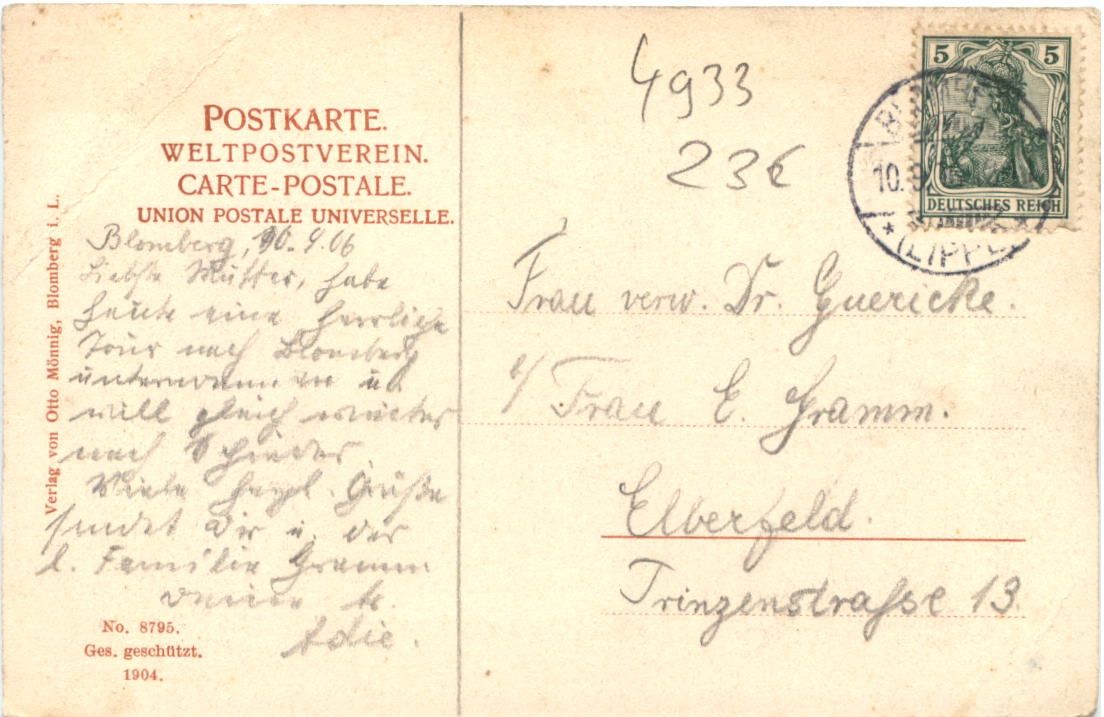 POSTKARTE.
WELTPOSTVEREIN.
CARTE-POSTALE.
UNION POSTALE UNIVERSELLE.
Verlag von Otto Mönnig, Blomberg i. L.
Blomberg, 10.9.06
Liebste Mutter, habe
heute eine herrliche
Tour nach Blomberg
unternommen u.
will gleich weiter
nach Schieder.
Viele herzl. Grüße
sendet Dir u. der
l. Familie Gramm
Deine tr.
No. 8795.
Ges. geschützt.
1904.
4933
23€
5 5
DEUTSCHES REICH
10.
* (LIPPE)
Frau verw. Dr. Guericke.
Frau E. Gramm.
Elberfeld.
Prinzenstraße 13.